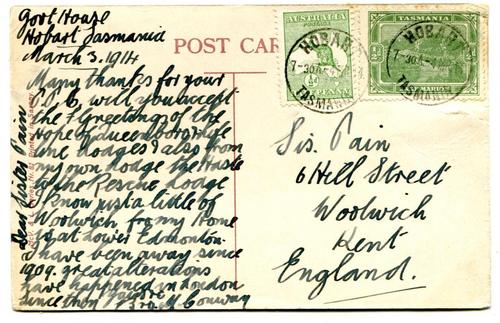 Govt House
Hobart Tasmania
March 3. 1914
POST CAR
AUSTRALIA
POSTAGE
½d
PENNY
TASMANIA
½d
TASMAN'S
HOBART
TASMANIA
HOBART
TASMANIA
Dear Sister Pain
Many thanks for your
will you accept
the Greetings of the
Hope & Queenborough
June Lodges & also from
my own Lodge the Haste
to the Rescue Lodge
I know just a little of
Woolwich for my Home
is at Lower Edmonton
have been away since
1909. great alterations
have happened in London
since then
Conway
Sis. Pain
6 Hill Street
Woolwich
Kent
England.